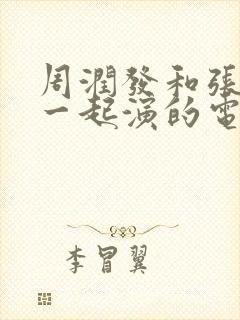 周潤發和張
一起演的電
李冒翼